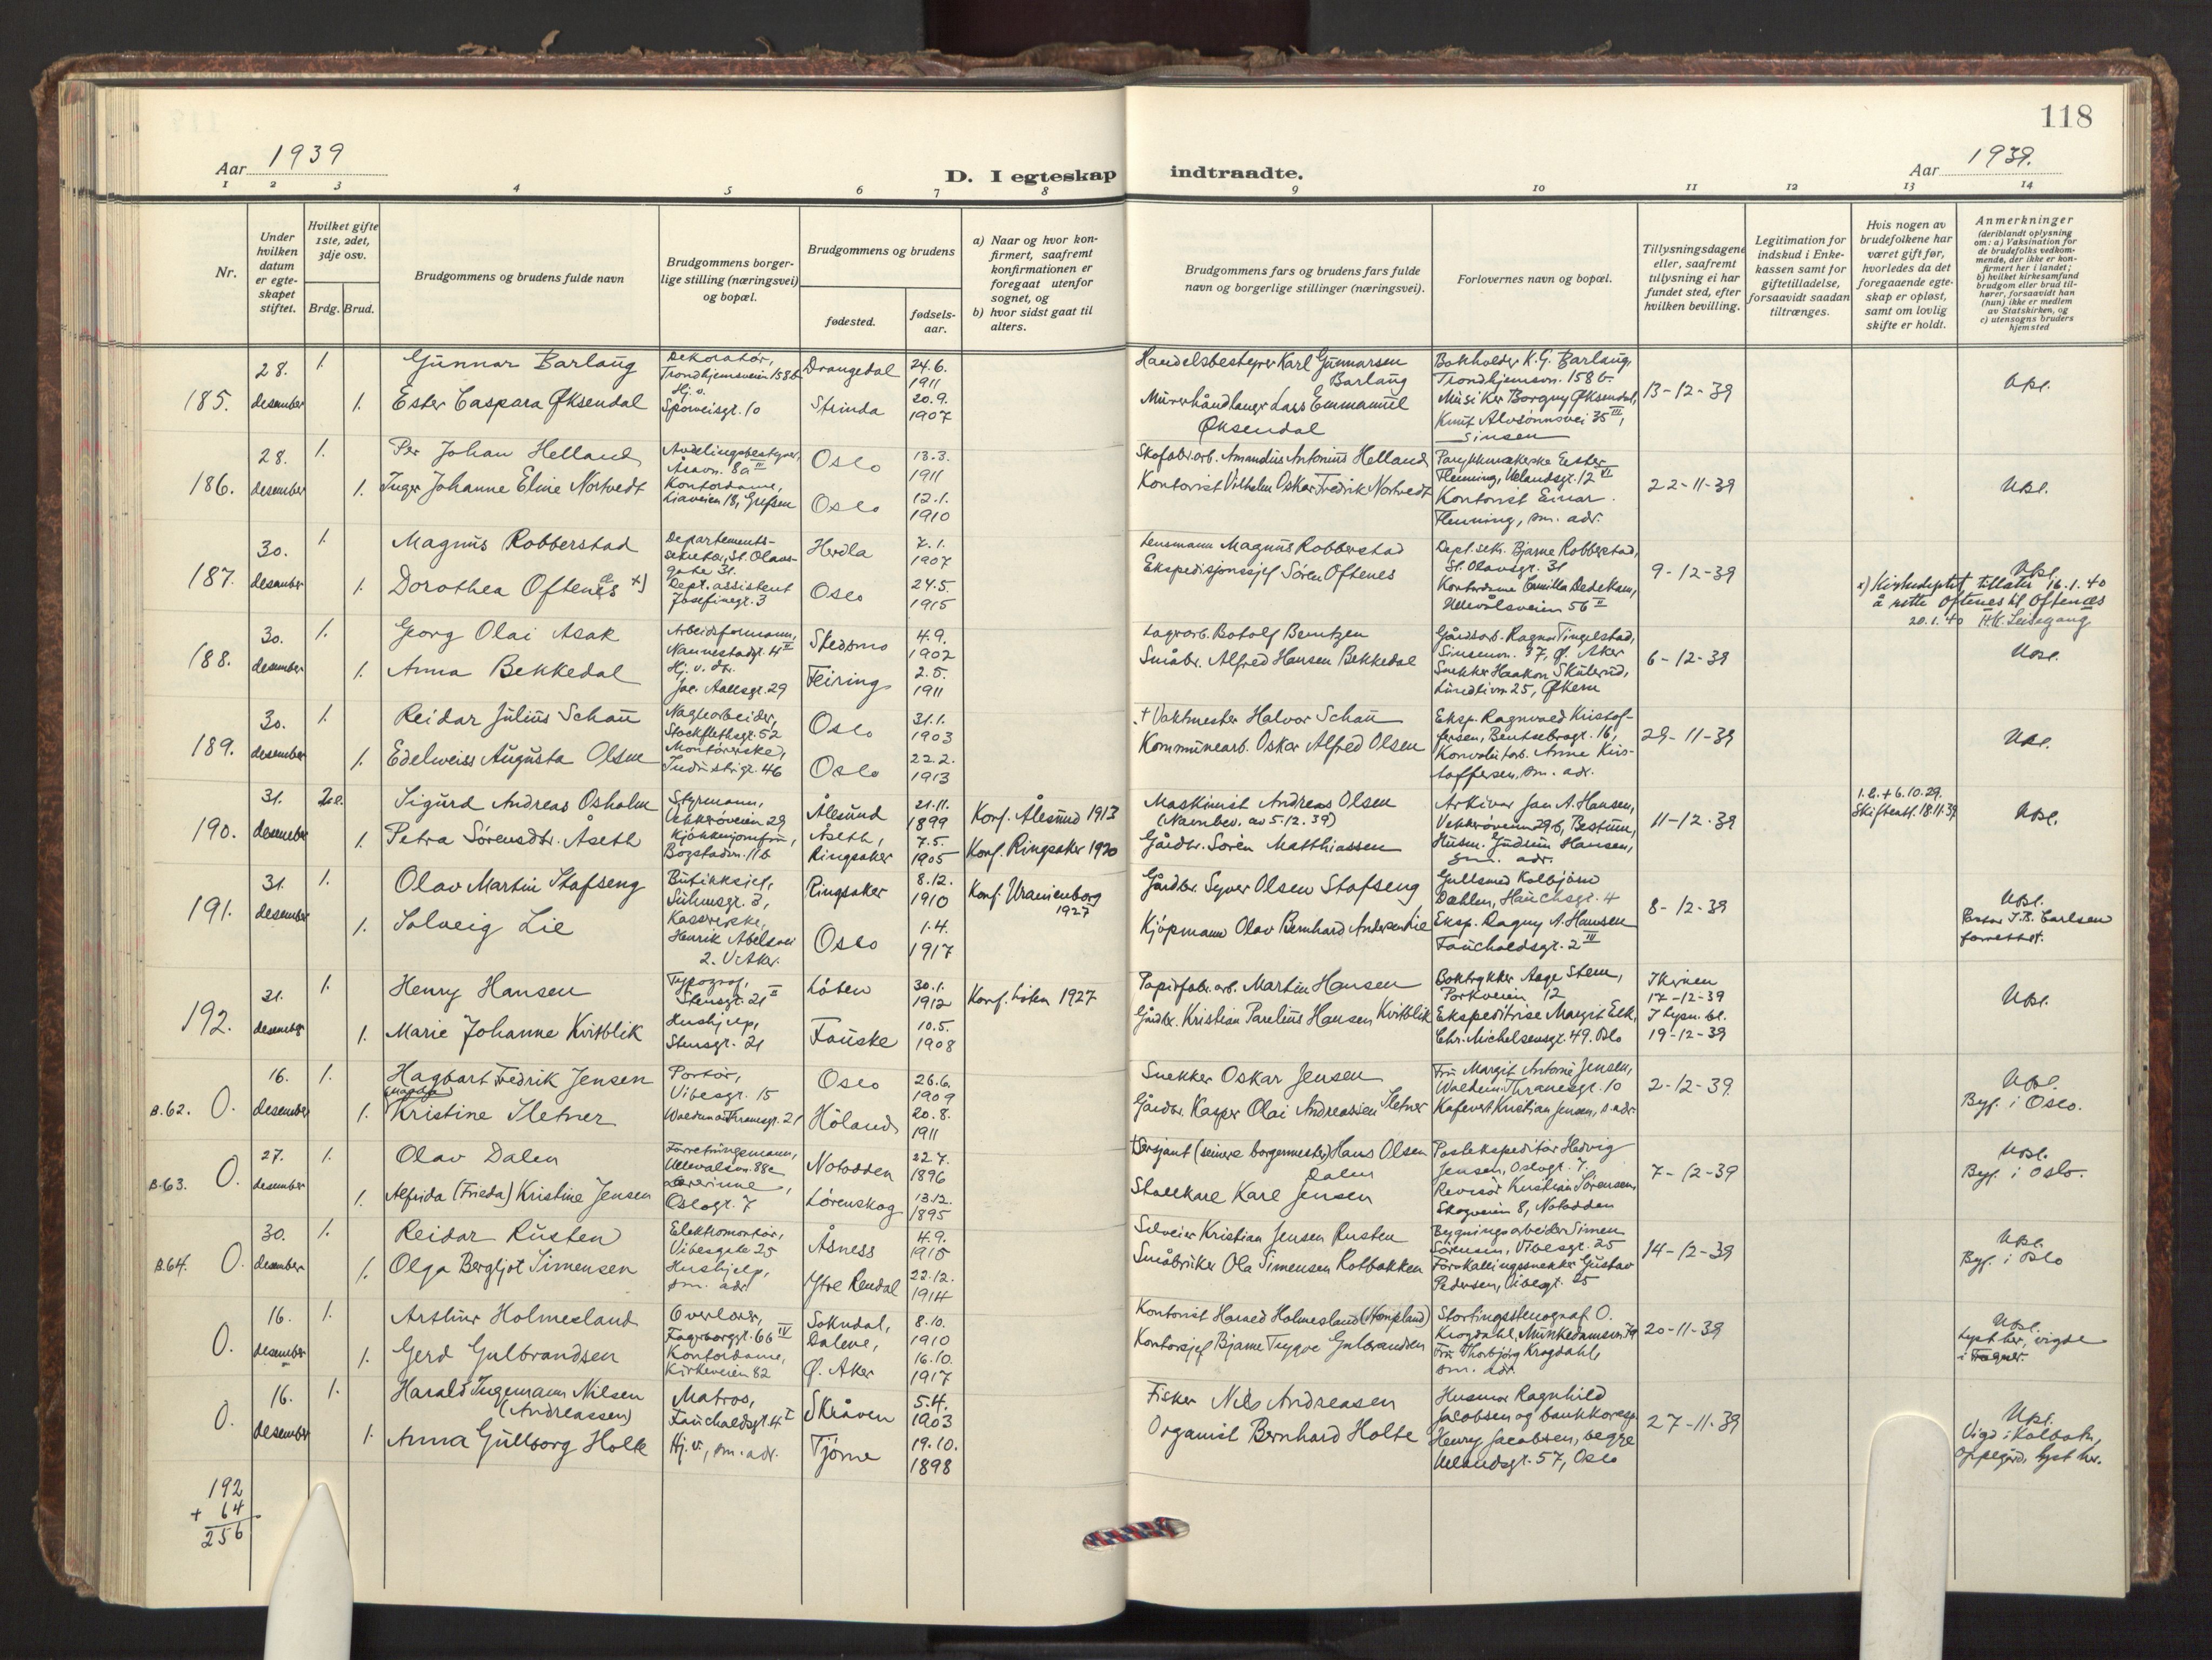 118
Aar 1939
D. I egteskap indtraadte.
Aar 1939.
1 2 3 4 5 6 7 8 9 10 11 12 13 14
Nr.
Under hvilken datum er egteskapet stiftet.
Hvilket gifte 1ste, 2det, 3dje osv.
Brdg. Brud.
Brudgommens og brudens fulde navn
Brudgommens borgerlige stilling (næringsvei) og bopæl.
Brudgommens og brudens
fødested.
fødselsaar.
a) Naar og hvor konfirmert, saafremt konfirmationen er foregaat utenfor sognet, og
b) hvor sidst gaat til alters.
Brudgommens fars og brudens fars fulde navn og borgerlige stillinger (næringsvei).
Forlovernes navn og bopæl.
Tillysningsdagene eller, saafremt tillysning ei har fundet sted, efter hvilken bevilling.
Legitimation for indskud i Enkekassen samt for giftetilladelse, forsaavidt saadan tiltrænges.
Hvis nogen av brudefolkene har været gift før, hvorledes da det foregaaende egteskap er opløst, samt om lovlig skifte er holdt.
Anmerkninger (deriblandt oplysning om: a) Vaksination for de brudefolks vedkommende, der ikke er konfirmert her i landet; b) hvilket kirkesamfund brudgom eller brud tilhører, forsaavidt han (hun) ikke er medlem av Statskirken, og c) utensogns bruders hjemsted
185. 28. desember 1.
Gunnar Barlaug
Dekoratör, Trondhjemsveien 158b
Drangedal
24.6. 1911
Handelsbestyrer Karl Gunnarsen Barlaug
Bokholder K.G. Barlaug, Trondhjemsvn. 158b.
13-12-39
1. Ester Caspara Øksendal
Hj. v. Sporveisgt. 10
Strinda
20.9. 1907
Murerhåndlanger Lars Emmanuel Øksendal
Musiker Borgny Øksendal, Knut Alvsønnsvei 35 III, Sinsen
186. 28. desember 1.
Per Johan Helland
Avdelingsbestyrer, Åsavn. 8a II
Oslo
13.3. 1911
Skofabr.arb. Amandus Antonius Helland
22-11-39
1. Inger Johanne Eline Nortvedt
Kontordame, Liaveien 18, Grefsen
Oslo
12.1. 1910
Kontorist Vilhelm Oskar Fredrik Nortvedt
Kontorist Einar Flenning, sm. adr.
187. 30. desember 1.
Magnus Robberstad
Departementssekretær, St. Olavsgate 31.
Herdla
7.1. 1907
Lensmann Magnus Robberstad
Dept.sekr. Bjarne Robberstad, St. Olavsgt. 31
9-12-39
1. Dorothea Oftenes x)
Dept. assistent Josefinegt. 3
Oslo
24.5. 1915
Ekspedisjonssjef Sören Oftenes
Kontordame Camilla Dedekam, Ullevålsveien 56 II
x) Kirkedeptet tillater 16.1.40 å rette Oftenes til Oftenæs
20.1.40
188. 30. desember 1.
Georg Olai Asak
Arbeidsformann, Nannestadgt. 4 II
Skedsmo
4.9. 1902
Lagerarb. Botolf Berntzen
Gårdsarb. Ragnar Tingelstad, Sinsenvn. 37, Ø. Aker
6-12-39
1. Anna Bekkedal
Hj. v. dr. Jac. Aallsgt. 29
Feiring
2.5. 1911
Småbr. Alfred Hansen Bekkedal
Snekker Haakon Skuterud, 25, Økern
189. 30. desember 1.
Reidar Julius Schau
Naglearbeider, Stockflethsgt. 52
Oslo
31.1. 1903
+ Vaktmester Halvor Schau
Eksp. Ragnvald Kristoffersen, Bentsebrogt. 16,
29-11-39
1. Edelweiss Augusta Olsen
Montörerske, Industrigt. 46
Oslo
22.2. 1913
Kommunearb. Oskar Alfred Olsen
Konvoluttarb. Anne Kristoffersen, sm. adr.
190. 31. desember 2.
Sigurd Andreas Osholm
Styrmann, Vekkeröveien 29
Ålesund
21.11. 1899
Konf. Ålesund 1913
Maskinist Andreas Olsen (Navnbev. av 5.12.39)
Arkivar Jan A. Hansen, Vekkeröveien 29b, Bestum,
11-12-39
1.e. + 6.10.29. Skifteatt. 18.11.39
1. Petra Sörensdtr. Åseth
Kjökkenjomfru, Bogstadvn. 11b
Åseth, Ringsaker
7.5. 1905
Konf. Ringsaker 1920
Gårdbr. Sören Matthiassen
Husm. Gudrun Hansen, sm. adr.
191. 31. desember 1.
Olav Martin Stafseng
Butikksjef, Suhmsgt. 3,
Ringsaker
8.12. 1910
Konf. Uranienborg 1927
Gårdbr. Syver Olsen Stafseng
Gullsmed Kolbjörn Dæhlen, Hauchsgt. 4
8-12-39
Pastor J.B. Carlsen forrettet.
1. Solveig Lie
Kassererske, Henrik Abelsvei 2. V. Aker.
Oslo
1.4. 1917
Kjöpmann Olav Bernhard Andersen Lie
Eksp. Dagny A. Hansen Fauchaldsgt. 2 III
192. 31. desember 1.
Henry Hansen
Typograf, Stensgt. 21 II
Löten
30.1. 1912
Konf. Löten 1927
Papirfabr.arb. Martin Hansen
Boktrykker Aage Stem, Parkveien 12
I kirken 17-12-39
1. Marie Johanne Kvitblik
Hushjelp, Stensgt. 21
Fauske
10.5. 1908
Gårdbr. Kristian Parelius Hansen Kvitblik
Ekspeditrise Margit Eek, Chr. Michelsensgt. 49. Oslo
I Lysn. bl. 19-12-39
B.62. O. 16. desember 1.
Hagbart Fredrik Jensen
Portör, Vibesgt. 15
Oslo
26.6. 1909
Snekker Oskar Jensen
Fru Margit Antonie Jensen, Waldem. Thranesgt. 10
2-12-39.
Byf. i Oslo.
1. Kristine Sletner
Waldemar Thranesgt. 21
Höland
20.8. 1911
Gårdbr. Kasper Olai Andreassen Sletner
Kafévert Kristian Jensen, s. adr.
B.63. O. 27. desember 1.
Olav Dalen
Forretningsmann, Ullevålsvn. 88c
Notodden
22.7. 1896
+ Sersjant (seinere borgermester) Hans Olsen Dalen
Postekspeditör Hedvig Jensen, Oslogt. 7.
7-12-39
Byf. i Oslo.
1. Alfrida (Frieda) Kristine Jensen
Lærerinne, Oslogt. 7
Lörenskog
13.12. 1895
Stallkarl Karl Jensen
Revisor Kristian Sörensen, Skogveien 8, Notodden
B.64. O. 30. desember 1.
Reidar Rusten
Elektromontör, Vibesgate 25
Åsness
4.9. 1915
Selveier Kristian Jensen Rusten
Bygningsarbeider Simen Sörensen, Vibesgt. 25
14-12-39
Byf. i Oslo
1. Olga Bergljot Simensen
Hushjelp, sm. adr.
Ytre Rendal
22.12. 1914
Småbruker Ola Simensen Rotbakken
Forskallingssnekker Gustav Pedersen, Vibesgt. 25
O. 16. desember 1.
Arthur Holmesland
Overlærer, Fagerborggt. 66 IV
Sokndal, Dalene,
8.10. 1910
Kontorist Harald Holmesland (Hompland)
Stortingsstenograf O. Krogdahl, Munkedamsvn. 79
20-11-39
Lyst her, vigde i Fagerb.
1. Gerd Gulbrandsen
Kontordame, Kirkeveien 82
Ø. Aker
16.10. 1917
Kontorsjef Bjarne Trygve Gulbrandsen
Fru Thorbjörg Krogdahl, sm. adr.
O. 16. desember 1.
Harald Ingemann Nilsen (Andreassen)
Matros, Fauchaldsgt. 4 I
Skråven
5.4. 1903
Fisker Nils Andreasen
Husmor Ragnhild Jacobsen og bankkoresp. Henry Jacobsen, begge Uelandsgt. 57, Oslo
27-11-39
Vigd i Kolbotn, Oppegård. Lyst her.
1. Anna Gullborg Holte
Hj. v., sm. adr.
Tjöme
19.10. 1898
Organist Bernhard Holte
192
+ 64
256